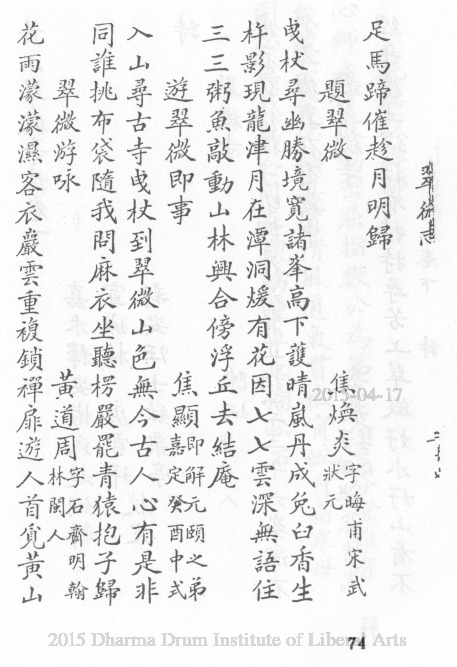 翠微志
足馬蹄催趁月明歸
題翠微 焦煥炎 字晦甫宋武
狀元
曳杖尋幽勝境寬諸峯高下護晴嵐丹成兔臼香生
杵影現龍津月在潭洞煖有花因七七雲深無語住
三三粥魚敲動山林興合傍浮丘去結庵
遊翠微即事 焦顯 即解元頤之弟
嘉定癸酉中式
入山尋古寺曳杖到翠微山色無今古人心有是非
同誰挑布袋隨我問麻衣坐聽楞嚴罷青猿抱子歸
翠微游咏 黃道周 字石齋明翰
林閣人
花雨濛濛濕客衣巖雲重複鎖禪扉遊人首覓黃山
2015-04-17
74
2015 Dharma Drum Institute of Liberal Arts